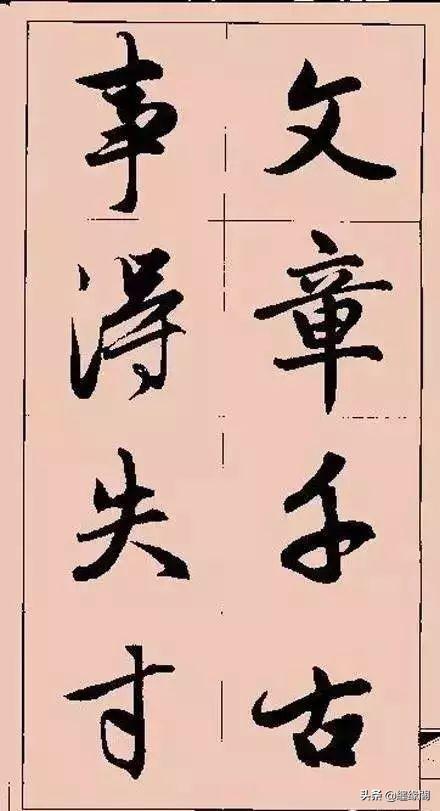 文章千古
事得失寸
头条 @缠缘阁